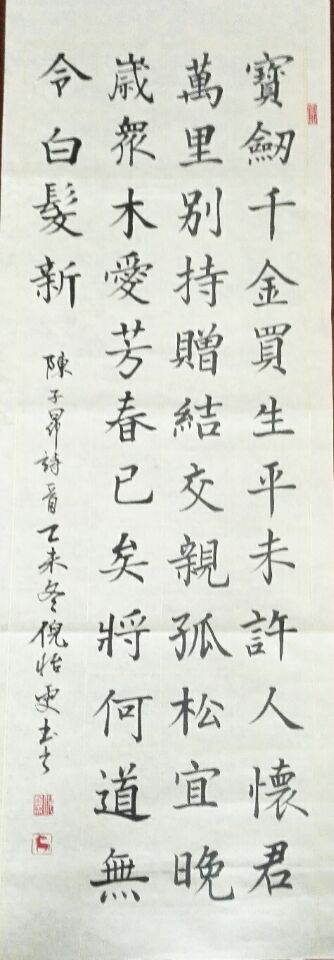 寶劒千金買生平未許人懷君
萬里别持贈結交親孤松宜晚
歲衆木愛芳春已矣將何道無
令白髮新
陳子昂詩首乙未冬倪怡更书之